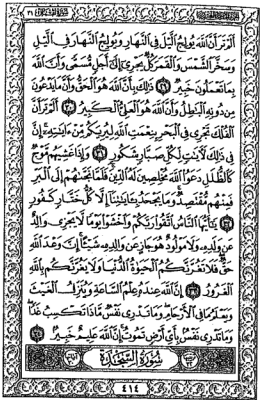 أَلَمْ تَرَ أَنَّ ٱللَّهَ يُولِجُ ٱلَّيْلَ فِي ٱلنَّهَارِ وَيُولِجُ ٱلنَّهَارَ فِي ٱلَّيْلِ
وَسَخَّرَ ٱلشَّمْسَ وَٱلْقَمَرَ كُلٌّ يَجْرِيٓ إِلَىٰٓ أَجَلٍ مُّسَمًّى وَأَنَّ ٱللَّهَ
بِمَا تَعْمَلُونَ خَبِيرٌ ٢٩ ذَٰلِكَ بِأَنَّ ٱللَّهَ هُوَ ٱلْحَقُّ وَأَنَّ مَا يَدْعُونَ
مِن دُونِهِ ٱلْبَٰطِلُ وَأَنَّ ٱللَّهَ هُوَ ٱلْعَلِيُّ ٱلْكَبِيرُ ٣٠ أَلَمْ تَرَ أَنَّ
ٱلْفُلْكَ تَجْرِي فِي ٱلْبَحْرِ بِنِعْمَتِ ٱللَّهِ لِيُرِيَكُم مِّنْ ءَايَٰتِهِۦٓ إِنَّ
فِي ذَٰلِكَ لَءَايَٰتٍ لِّكُلِّ صَبَّارٍ شَكُورٍ ٣١ وَإِذَا غَشِيَهُم مَّوْجٌ
كَٱلظُّلَلِ دَعَوُا۟ ٱللَّهَ مُخْلِصِينَ لَهُ ٱلدِّينَ فَلَمَّا نَجَّىٰهُمْ إِلَى ٱلْبَرِّ
فَمِنْهُم مُّقْتَصِدٌ وَمَا يَجْحَدُ بِـَٔايَٰتِنَآ إِلَّا كُلُّ خَتَّارٍ كَفُورٍ
٣٢ يَٰٓأَيُّهَا ٱلنَّاسُ ٱتَّقُوا۟ رَبَّكُمْ وَٱخْشَوْا۟ يَوْمًا لَّا يَجْزِي وَالِدٌ
عَن وَلَدِهِۦ وَلَا مَوْلُودٌ هُوَ جَازٍ عَن وَالِدِهِۦ شَيْـًٔا إِنَّ وَعْدَ ٱللَّهِ
حَقٌّ فَلَا تَغُرَّنَّكُمُ ٱلْحَيَوٰةُ ٱلدُّنْيَا وَلَا يَغُرَّنَّكُم بِٱللَّهِ
ٱلْغَرُورُ ٣٣ إِنَّ ٱللَّهَ عِندَهُۥ عِلْمُ ٱلسَّاعَةِ وَيُنَزِّلُ ٱلْغَيْثَ
وَيَعْلَمُ مَا فِي ٱلْأَرْحَامِ وَمَا تَدْرِي نَفْسٌ مَّاذَا تَكْسِبُ غَدًا
وَمَا تَدْرِي نَفْسٌۢ بِأَيِّ أَرْضٍ تَمُوتُ إِنَّ ٱللَّهَ عَلِيمٌ خَبِيرٌۢ ٣٤
سُورَةُ ٱلسَّجْدَةِ
٤١٤